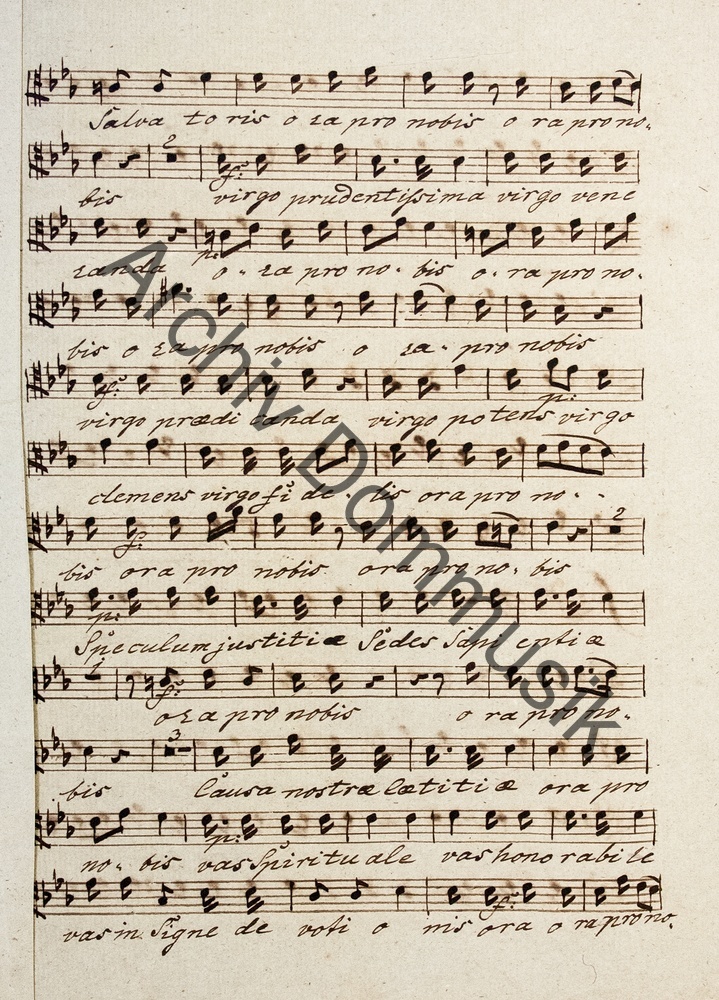 Salva toris o ra pro nobis o ra pro no-
2
bis virgo prudentissima virgo vene
f:
randa o - ra pro no - bis o - ra pro no -
p:
bis o ra pro nobis o ra - pro nobis
virgo prædi canda virgo potens virgo
f: p:
clemens virgo fi de - lis ora pro no - -
2
bis ora pro nobis ora pro no - bis
f:
Speculum justitiæ Sedes Sapi entiæ
p:
1
o ra pro nobis o ra pro no -
f:
3
bis Causa nostræ lætitiæ ora pro
no - bis vas Spiritu ale vas hono rabile
p:
vas in Signe de voti o nis ora o ra pro no -
f:
Archiv Dommusik